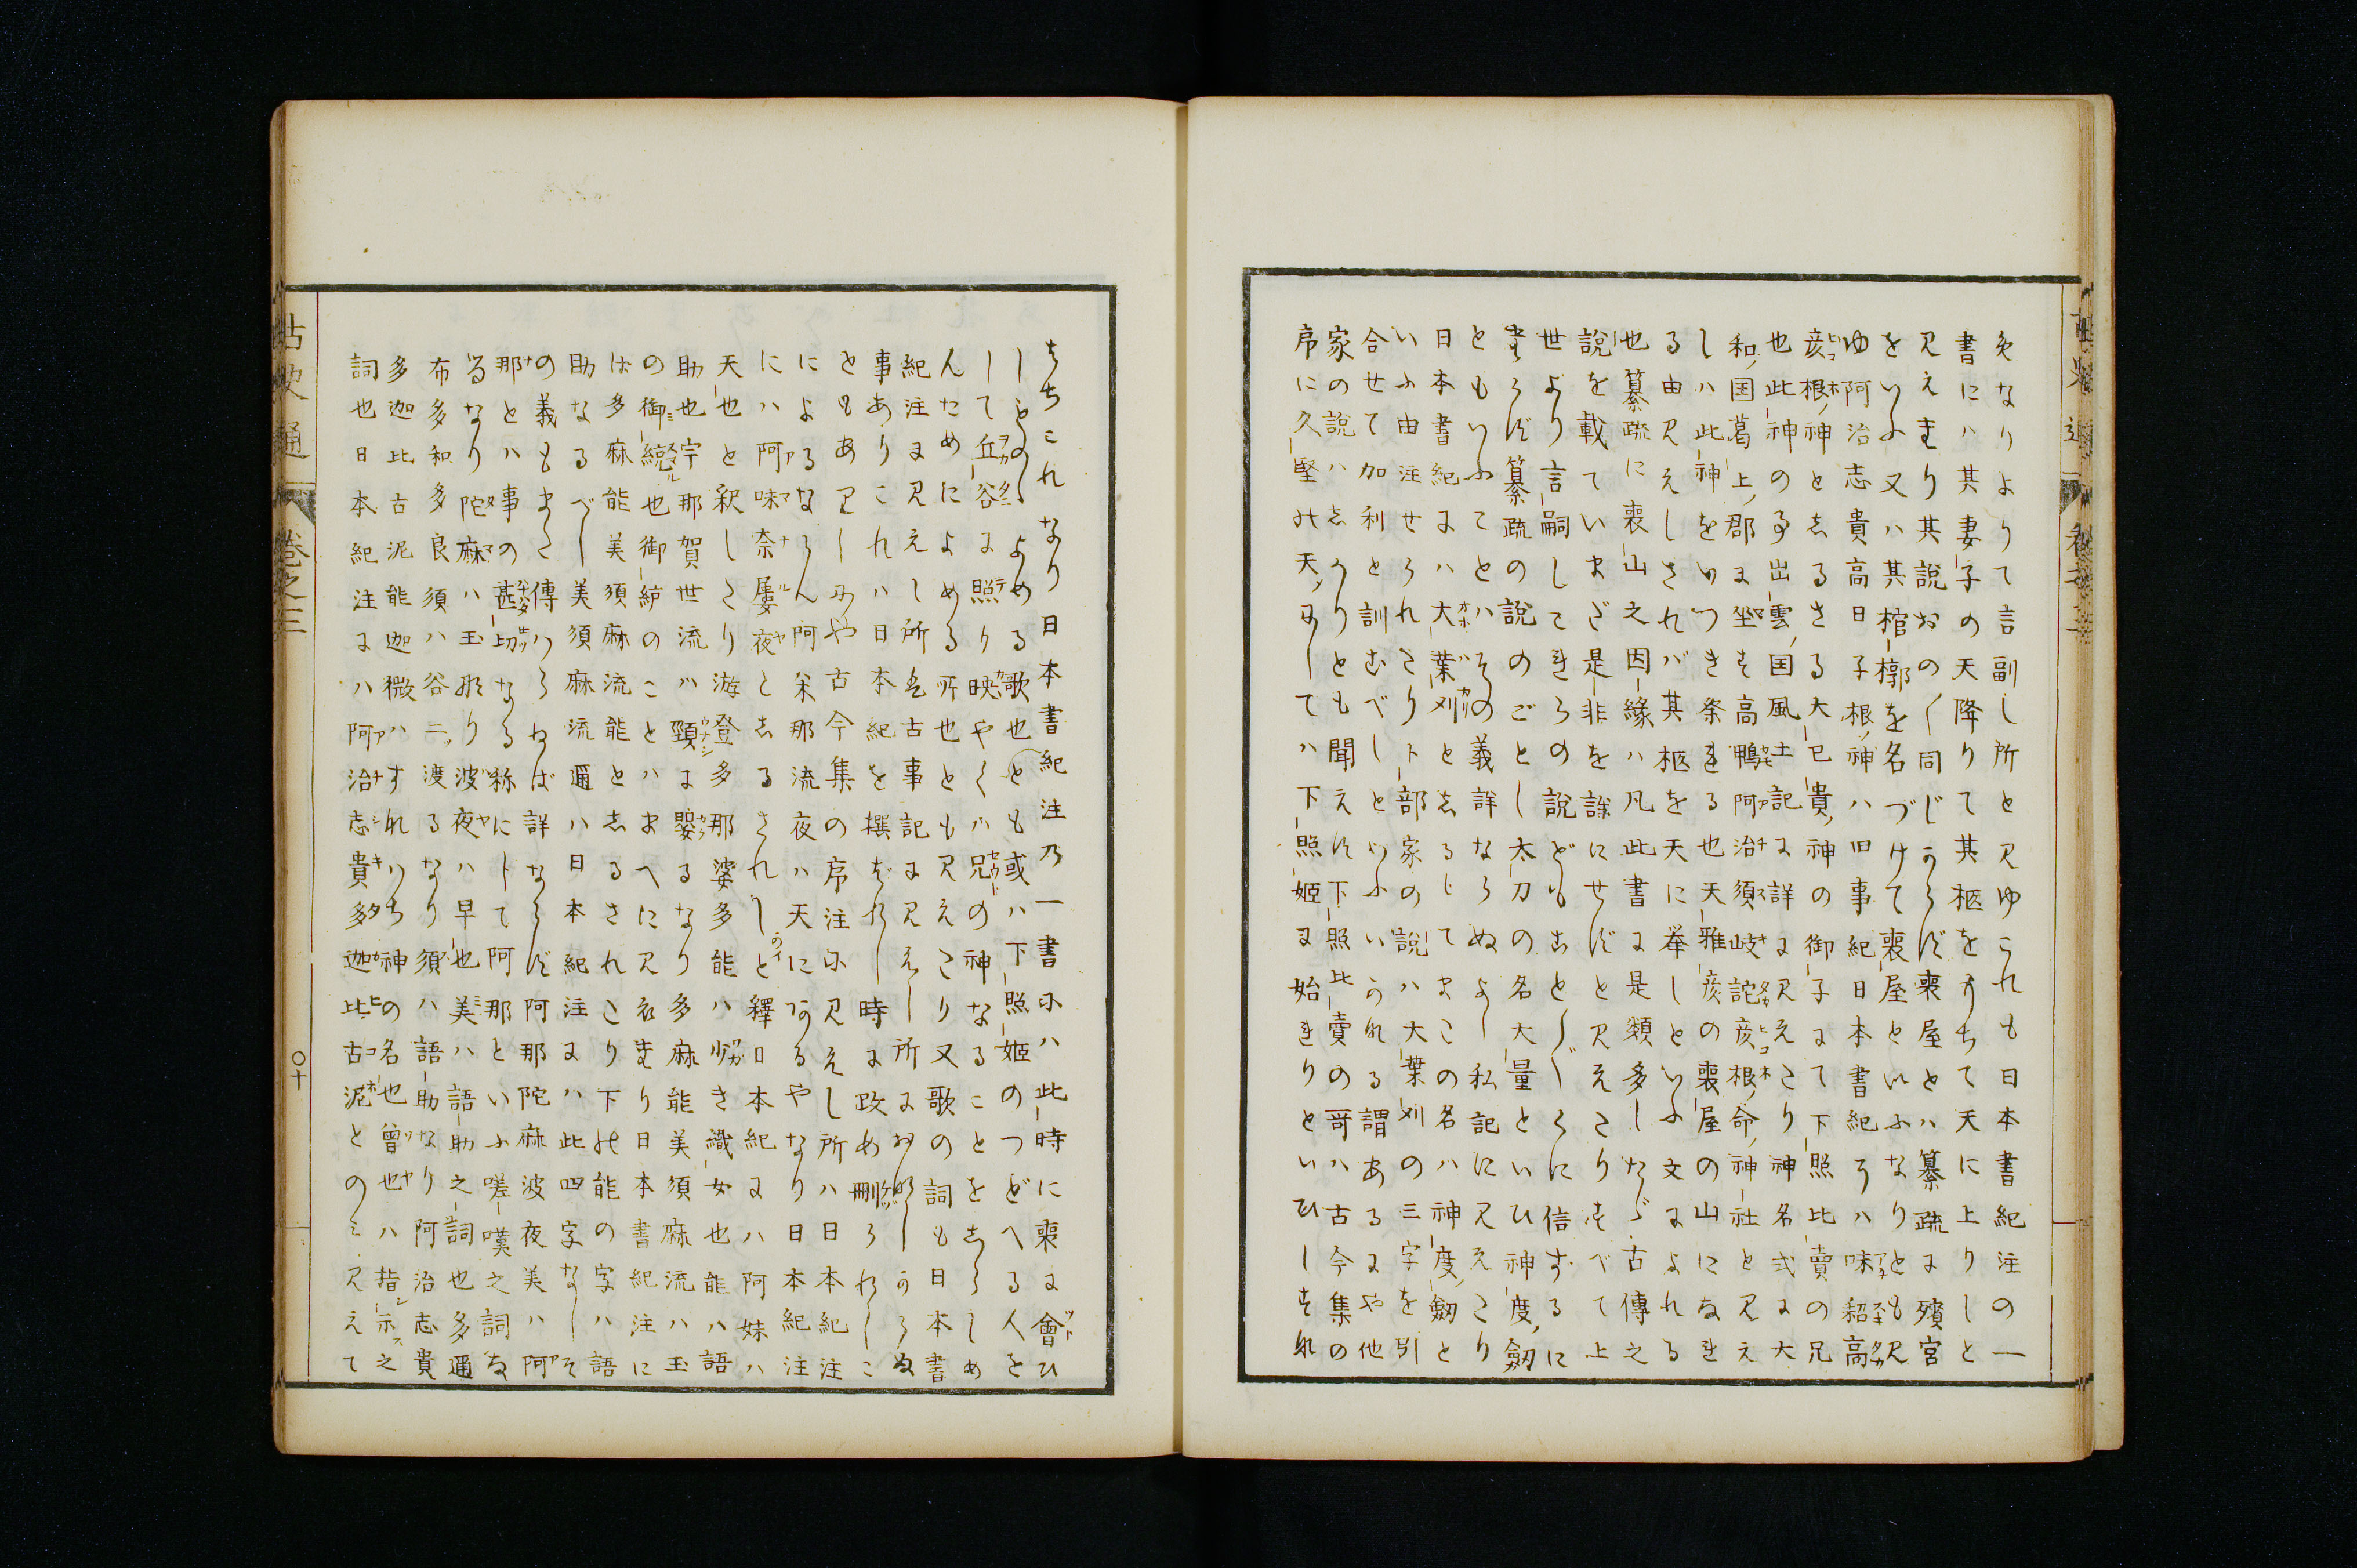 矣なりよりて言副し所と見ゆこれも日本書紀注の一
書にハ其妻子の天降りて其柩をもちて天に上りしと
見えまり其説おの〱同じうらず喪屋とハ纂疏ま殯宮
をいふ又ハ其棺槨を名づけて喪屋といふなりとも見
ゆ阿治志貴高日子根神ハ旧事紀日本書紀うハ味耜高
彦根神とゑるさる大己貴神の御子まて下照比賣の兄
也此神の事出雲国風土記ま詳ま見えさり神名式ま大
和国葛上郡ま坐す高鴨阿治須岐詫彦根命神社と見え
しハ此神をいつき祭まる也天雅彦の喪屋の山になま
る由見えしされバ其柩を天に挙しといふ文まよれる
也纂疏に喪山之因縁ハ凡此書ま是類多したゞ古傳之
説を載ていまだ是非を詳にせずと見えさりすべて上
世より言嗣してまろの説どもことごとくに信ずるに
まらず纂疏の説のごとし太刀の名大量といひ神度劔
ともいふてとハその義詳ならぬよし私記に見えさり
日本書紀まハ大葉刈とゑるしてまこの名ハ神度劔と
いふ由注せられさり卜部家の説ハ大葉刈の三字を引
合せて加利と訓むべしといふいうれる謂あるまや他
家の説ハゑうりとも聞えれ下照比賣の哥ハ古今集の
序に久堅の天ましてハ下照姫ま始まりといひしすれ
すちこれなり日本書紀注乃一書ホハ此時に喪ま會ひ
しものゝよめる歌也とも或ハ下照姫のつどへる人を
して丘谷ま照り映やくハ兄の神なることをゑらしめ
んためによめる所也とも見えさり又歌の詞も日本書
紀注ま見えし所と古事記ま見えし所まおなじうらぬ
事ありこれハ日本紀を撰ばれし時ま改め刪られしこ
ともありしみや古今集の序注ホ見えし所ハ日本紀注
によるならん阿米那流夜ハ天にあるやなり日本紀注
にハ阿味奈屢夜とゑるされしと釋日本紀まハ阿妹ハ
天也と釈しさり游登多那婆多能ハ少き織女也能ハ語
助也宇那賀世流ハ頸ま嬰るなり多麻能美須麻流ハ玉
の御繞也御統のことハまへに見ゑまり日本書紀注に
は多麻能美須麻流能とゑるされさり下の能の字ハ語
助なるべし美須麻流邇ハ日本紀注まハ此四字なしそ
の義もまさ傳ハらねば詳ならず阿那陀麻波夜美ハ阿
那とハ事の甚切なる称にして阿那といふ嗟嘆之詞な
るなり陀麻ハ玉なり波夜ハ早也美ハ語助之詞也多邇
布多和多良須ハ谷二渡るなり須ハ語助なり阿治志貴
多迦比古泥能迦微ハすれハち神の名也曾也ハ指示之
詞也日本紀注まハ阿治志貴多迦比古泥とのミ見えて
古史通
巻之三
〇十